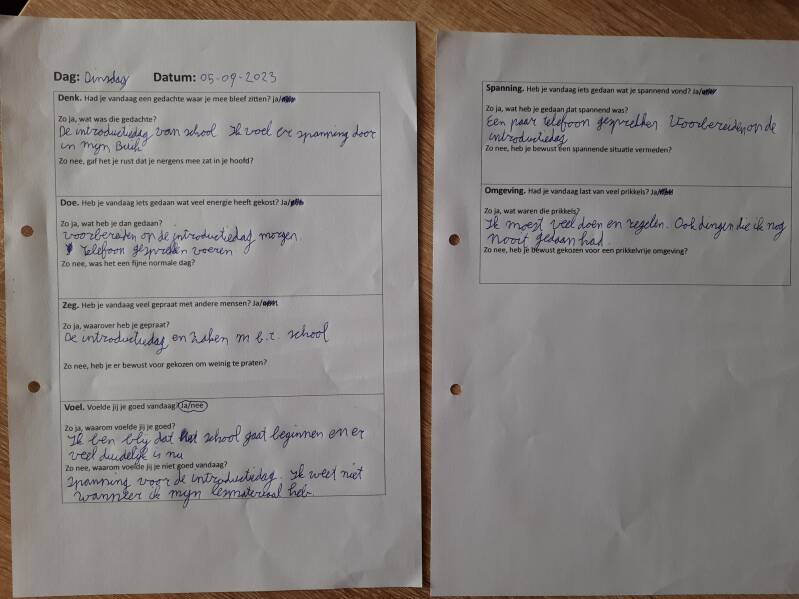 Dag: Dinsdag Datum: 05-09-2023
Denk. Had je vandaag een gedachte waar je mee bleef zitten? Ja/nee
Zo ja, wat was die gedachte?
De introductiedag van school Ik voel er spanning door
in mijn Buik
Zo nee, gaf het je rust dat je nergens mee zat in je hoofd?
Doe. Heb je vandaag iets gedaan wat veel energie heeft gekost? Ja/nee
Zo ja, wat heb je dan gedaan?
Voorbereiden op de introductiedag morgen.
Telefoon gesprekken voeren
Zo nee, was het een fijne normale dag?
Zeg. Heb je vandaag veel gepraat met andere mensen? Ja/nee
Zo ja, waarover heb je gepraat?
De introductiedag en zaken m.b.t. school
Zo nee, heb je er bewust voor gekozen om weinig te praten?
Voel. Voelde jij je goed vandaag? Ja/nee
Zo ja, waarom voelde jij je goed?
Ik ben blij dat school gaat beginnen en er
veel duidelijk is nu
Zo nee, waarom voelde jij je niet goed vandaag?
Spanning voor de introductiedag. Ik weet niet
wanneer ik mijn lesmateriaal heb.
Spanning. Heb je vandaag iets gedaan wat je spannend vond? Ja/nee
Zo ja, wat heb je gedaan dat spannend was?
Een paar telefoon gesprekken Voorbereiden op de
introductiedag
Zo nee, heb je bewust een spannende situatie vermeden?
Omgeving. Had je vandaag last van veel prikkels? Ja/nee
Zo ja, wat waren die prikkels?
Ik moest veel doen en regelen. Ook dingen die ik nog
nooit gedaan had.
Zo nee, heb je bewust gekozen voor een prikkelvrije omgeving?